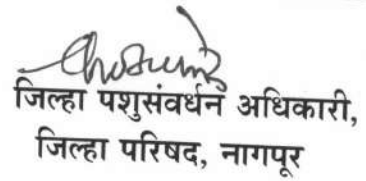 जिल्हा पशुसंवर्धन अधिकारी,
जिल्हा परिषद, नागपूर